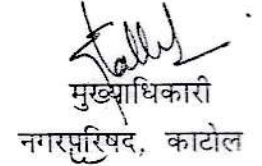 मुख्याधिकारी
नगरपरिषद, काटोल